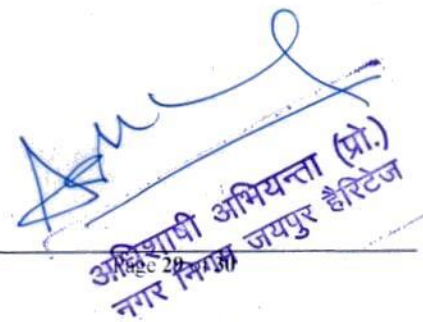 अधिशाषी अभियन्ता (प्रो.)
नगर निगम जयपुर हैरिटेज
Page 29 of 30